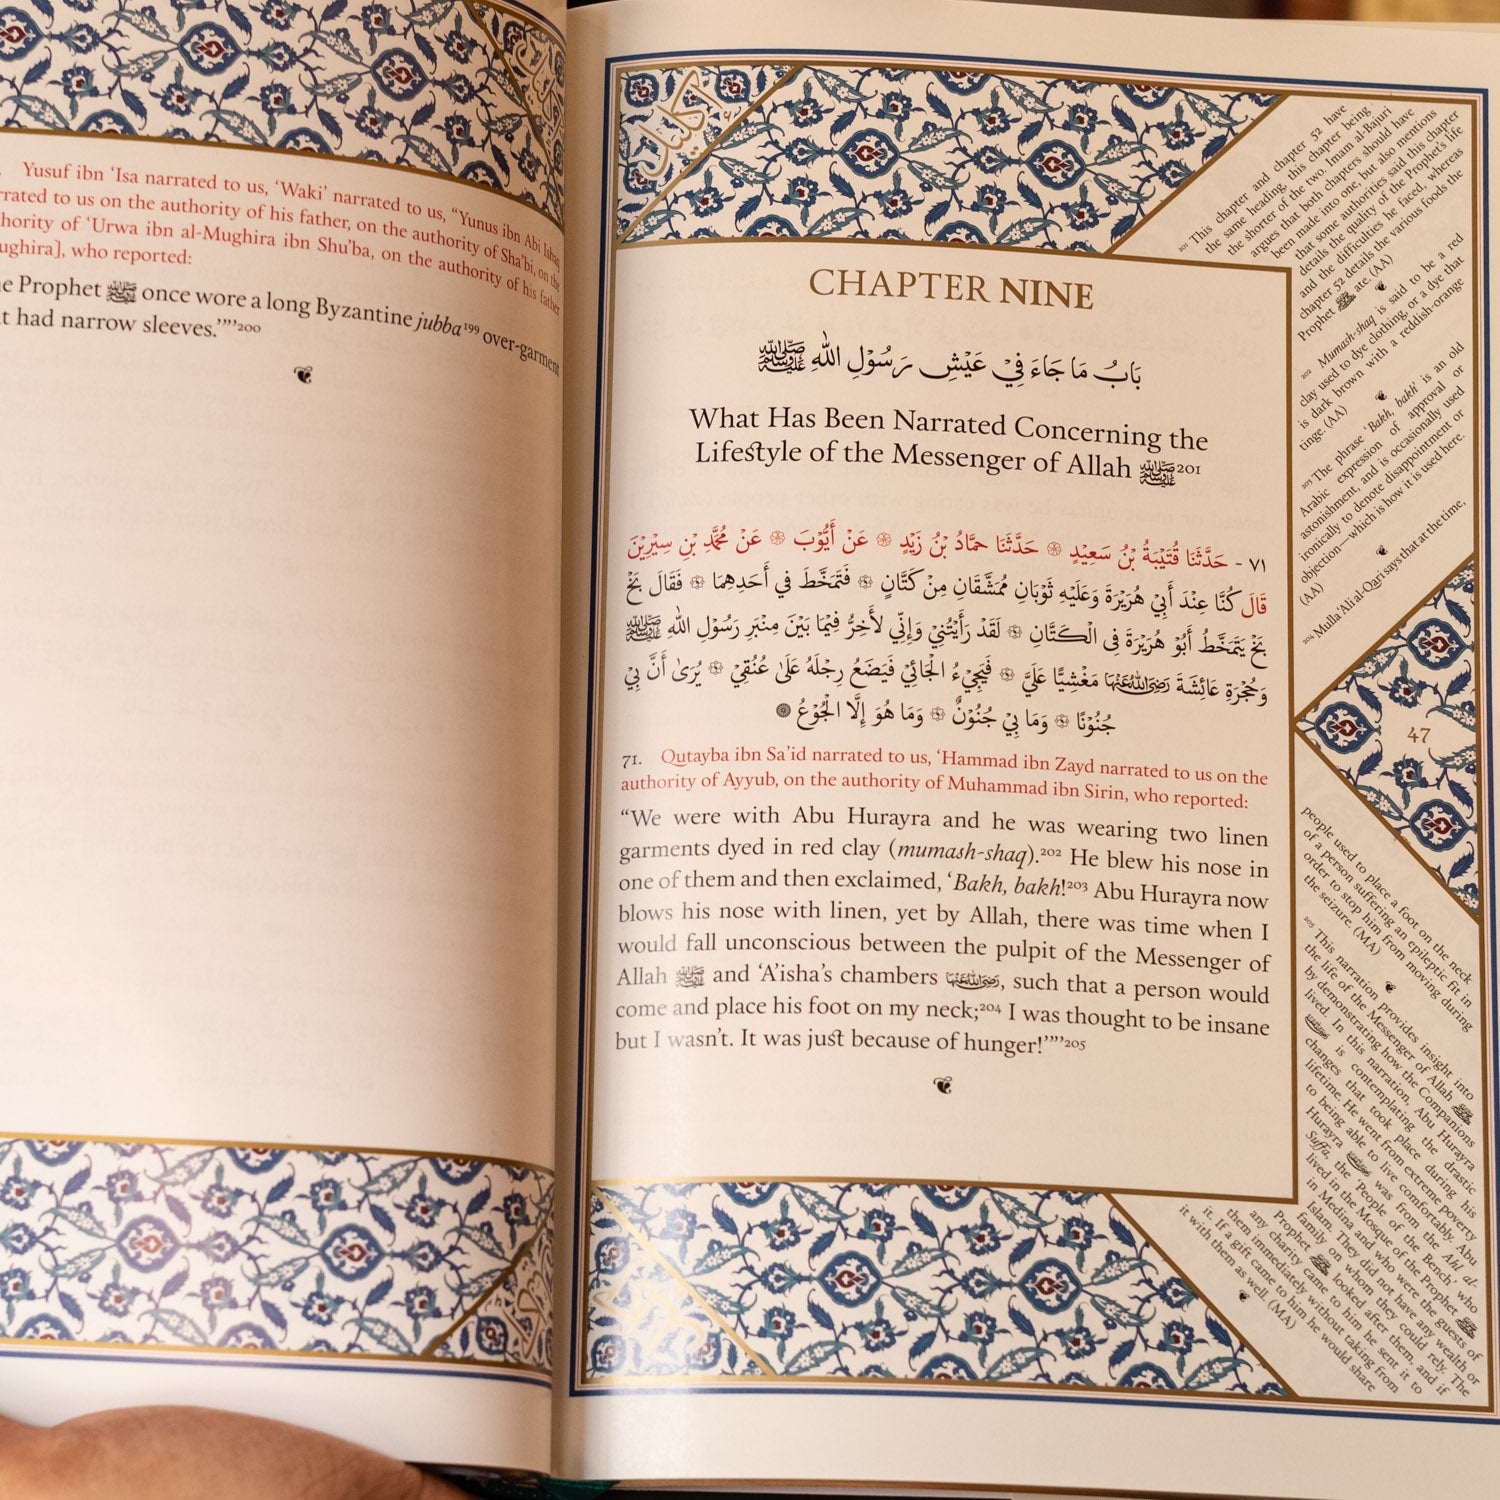 Yusuf ibn ‘Isa narrated to us, ‘Waki’ narrated to us, “Yunus ibn Abi Ishaq
rrated to us on the authority of his father, on the authority of Sha‘bi, on the
thority of ‘Urwa ibn al-Mughira ibn Shu‘ba, on the authority of his father
ughira], who reported:
e Prophet ﷺ once wore a long Byzantine jubba¹⁹⁹ over-garment
t had narrow sleeves.’”’²⁰⁰
CHAPTER NINE
بَابُ مَا جَاءَ فِيْ عَيْشِ رَسُوْلِ اللهِ ﷺ
What Has Been Narrated Concerning the
Lifestyle of the Messenger of Allah ﷺ²⁰¹
٧١ - حَدَّثَنَا قُتَيْبَةُ بْنُ سَعِيْدٍ ۞ حَدَّثَنَا حَمَّادُ بْنُ زَيْدٍ ۞ عَنْ أَيُّوْبَ ۞ عَنْ مُحَمَّدِ بْنِ سِيْرِيْنَ
قَالَ كُنَّا عِنْدَ أَبِيْ هُرَيْرَةَ وَعَلَيْهِ ثَوْبَانِ مُمَشَّقَانِ مِنْ كَتَّانٍ ۞ فَتَمَخَّطَ فِي أَحَدِهِمَا ۞ فَقَالَ بَخْ
بَخْ يَتَمَخَّطُ أَبُوْ هُرَيْرَةَ فِي الْكَتَّانِ ۞ لَقَدْ رَأَيْتُنِيْ وَإِنِّي لَأَخِرُّ فِيْمَا بَيْنَ مِنْبَرِ رَسُوْلِ اللهِ ﷺ
وَحُجْرَةِ عَائِشَةَ رَضِيَ اللهُ عَنْهَا مَغْشِيًّا عَلَيَّ ۞ فَيَجِيْءُ الْجَائِيْ فَيَضَعُ رِجْلَهُ عَلَى عُنُقِيْ ۞ يُرَى أَنَّ بِيْ
جُنُوْنًا ۞ وَمَا بِيْ جُنُوْنٌ ۞ وَمَا هُوَ إِلَّا الْجُوْعُ
71. Qutayba ibn Sa‘id narrated to us, ‘Hammad ibn Zayd narrated to us on the
authority of Ayyub, on the authority of Muhammad ibn Sirin, who reported:
“We were with Abu Hurayra and he was wearing two linen
garments dyed in red clay (mumash-shaq).²⁰² He blew his nose in
one of them and then exclaimed, ‘Bakh, bakh!²⁰³ Abu Hurayra now
blows his nose with linen, yet by Allah, there was time when I
would fall unconscious between the pulpit of the Messenger of
Allah ﷺ and ‘A’isha’s chambers رَضِيَ اللهُ عَنْهَا, such that a person would
come and place his foot on my neck;²⁰⁴ I was thought to be insane
but I wasn’t. It was just because of hunger!’”’²⁰⁵
²⁰¹ This chapter and chapter 52 have
the same heading, this chapter being
the shorter of the two. Imam al-Bajuri
argues that both chapters should have
been made into one, but also mentions
that some authorities said this chapter
details the quality of the Prophet’s life
and the difficulties he faced, whereas
chapter 52 details the various foods the
Prophet ﷺ ate. (AA)
²⁰² Mumash-shaq is said to be a red
clay used to dye clothing, or a dye that
is dark brown with a reddish-orange
tinge. (AA)
²⁰³ The phrase ‘Bakh, bakh’ is an old
Arabic expression of approval or
astonishment, and is occasionally used
ironically to denote disappointment or
objection—which is how it is used here.
(AA)
²⁰⁴ Mulla ‘Ali al-Qari says that at the time,
47
people used to place a foot on the neck
of a person suffering an epileptic fit in
order to stop him from moving during
the seizure. (MA)
²⁰⁵ This narration provides insight into
the life of the Messenger of Allah ﷺ
by demonstrating how the Companions
lived. In this narration, Abu Hurayra
is contemplating the drastic
changes that took place during his
lifetime. He went from extreme poverty
to being able to live comfortably. Abu
Hurayra was from the Ahl al-
Suffa, the ‘People of the Bench’ who
lived in the Mosque of the Prophet ﷺ
in Medina and who were the guests of
Islam. They did not have any wealth or
family on whom they could rely. The
Prophet ﷺ looked after them, and if
any charity came to him he sent it to
them immediately without taking from
it. If a gift came to him he would share
it with them as well. (MA)